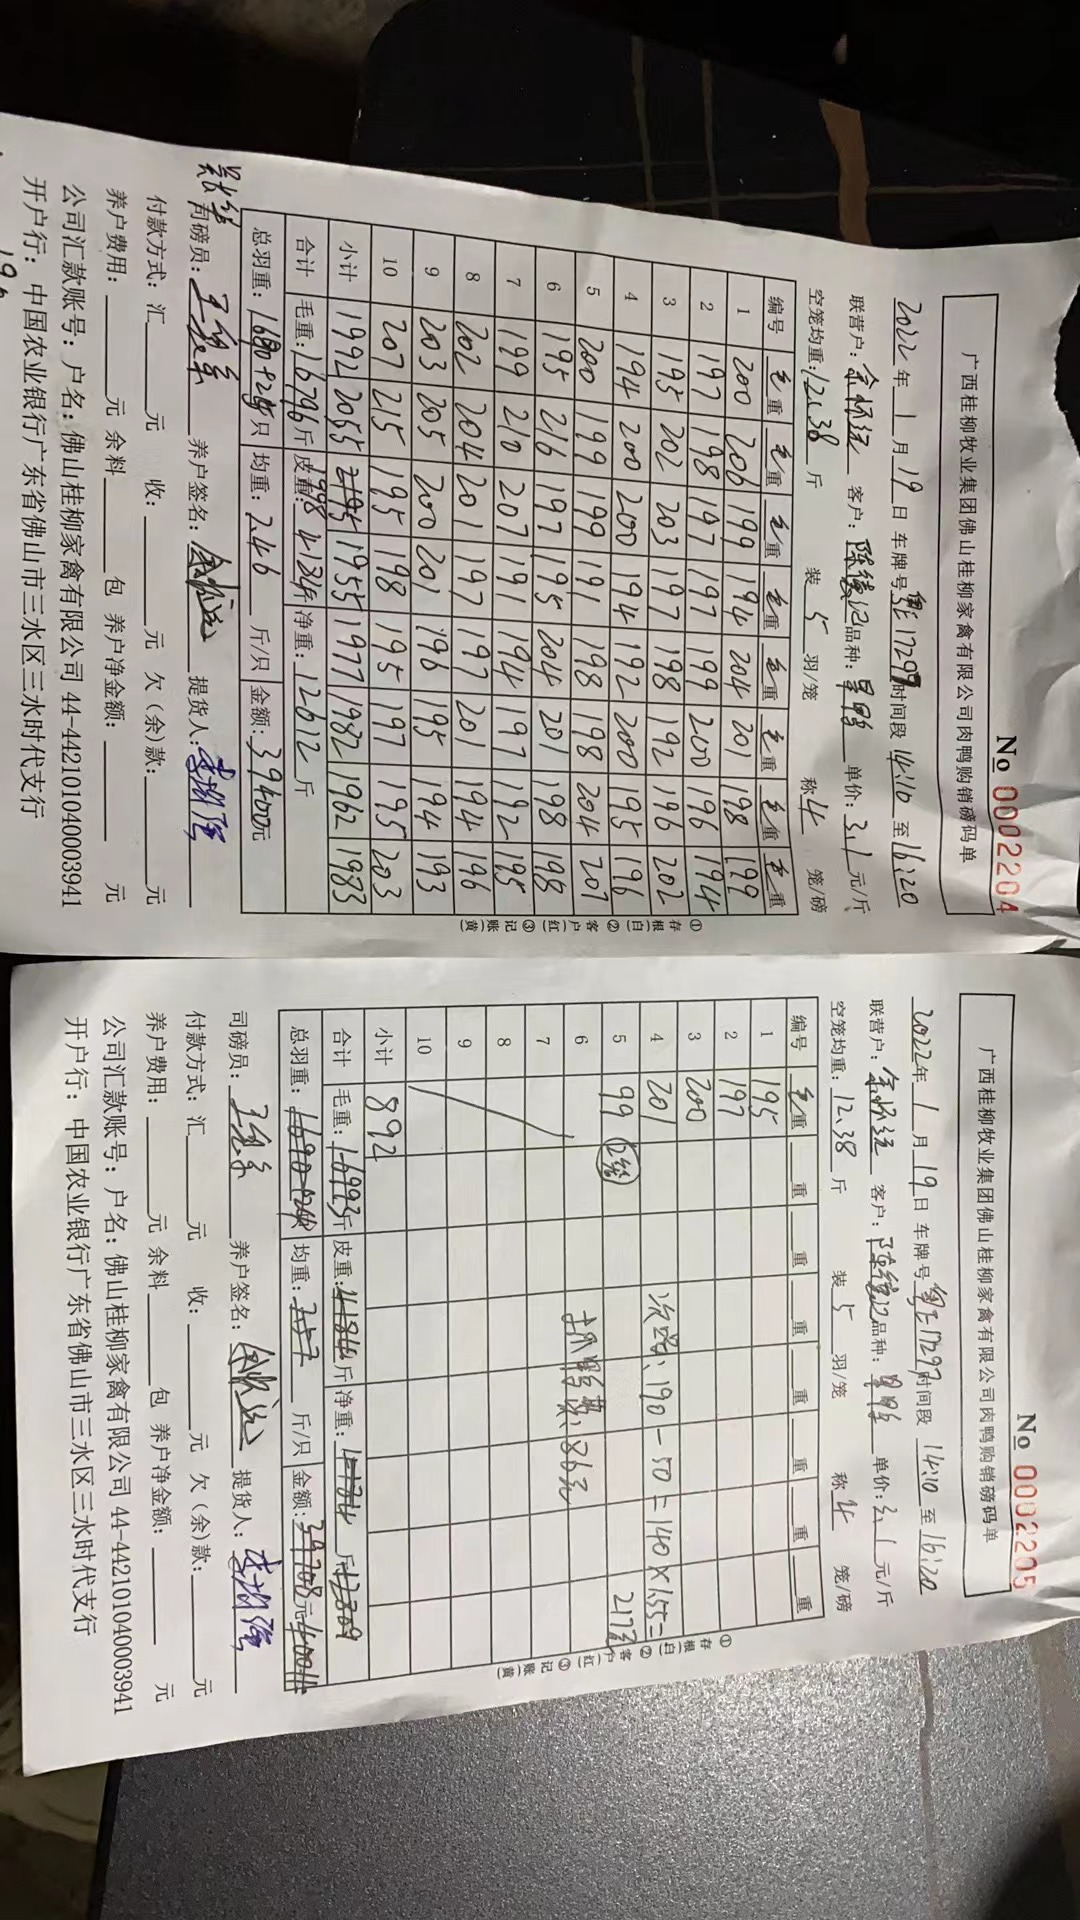 No 0002204
广西桂柳牧业集团佛山桂柳家禽有限公司肉鸭购销磅码单
2022年1月19日 车牌号 17297 时间段 14:10 至 16:20
联营户: 客户: 陈德记 品种: 单价: 3.1 元/斤
空笼均重: 12.38 斤 装 5 羽/笼 称 4 笼/磅
编号 毛重 毛重 毛重 毛重 毛重 毛重 毛重 毛重
1 200 206 199 194 204 201 198 199
2 197 198 197 197 199 200 196 194
3 195 202 203 197 198 192 196 202
4 194 200 200 194 192 200 195 196
5 200 199 199 191 198 198 204 207
6 195 216 197 195 204 201 198 198
7 199 210 207 191 194 197 192 195
8 202 204 201 197 197 201 194 196
9 203 205 200 201 196 195 194 193
10 207 215 195 198 195 197 195 203
小计 1992 2055 2195 1998 1955 1977 1982 1962 1983
合计 毛重: 16796 斤 皮重: 4184 斤 净重: 12612 斤
总羽重: 只 均重: 2.46 斤/只 金额: 39400 元
司磅员: 养户签名: 提货人:
付款方式: 汇 元 收: 元 欠(余)款: 元
养户费用: 元 余料 包 养户净金额: 元
公司汇款账号: 户名: 佛山桂柳家禽有限公司 44-442101040003941
开户行: 中国农业银行广东省佛山市三水区三水时代支行
①存根(白) ②客户(红) ③记账(黄)
No 0002205
广西桂柳牧业集团佛山桂柳家禽有限公司肉鸭购销磅码单
2022年1月19日 车牌号 17297 时间段 14:10 至 16:20
联营户: 客户: 陈德记 品种: 单价: 3.1 元/斤
空笼均重: 12.38 斤 装 5 羽/笼 称 4 笼/磅
编号 毛重 重 重 重 重 重 重 重
1 195
2 197
3 200
4 201 次鸭: 190-50=140×1.55=
5 99 2笼 217元
6 抓鸭费: 86元
7
8
9
10
小计 892
合计 毛重: 斤 皮重: 4184 斤 净重: 斤
总羽重: 均重: 斤/只 金额: 39708 元
司磅员: 养户签名: 提货人:
付款方式: 汇 元 收: 元 欠(余)款: 元
养户费用: 元 余料 包 养户净金额: 元
公司汇款账号: 户名: 佛山桂柳家禽有限公司 44-442101040003941
开户行: 中国农业银行广东省佛山市三水区三水时代支行
①存根(白) ②客户(红) ③记账(黄)